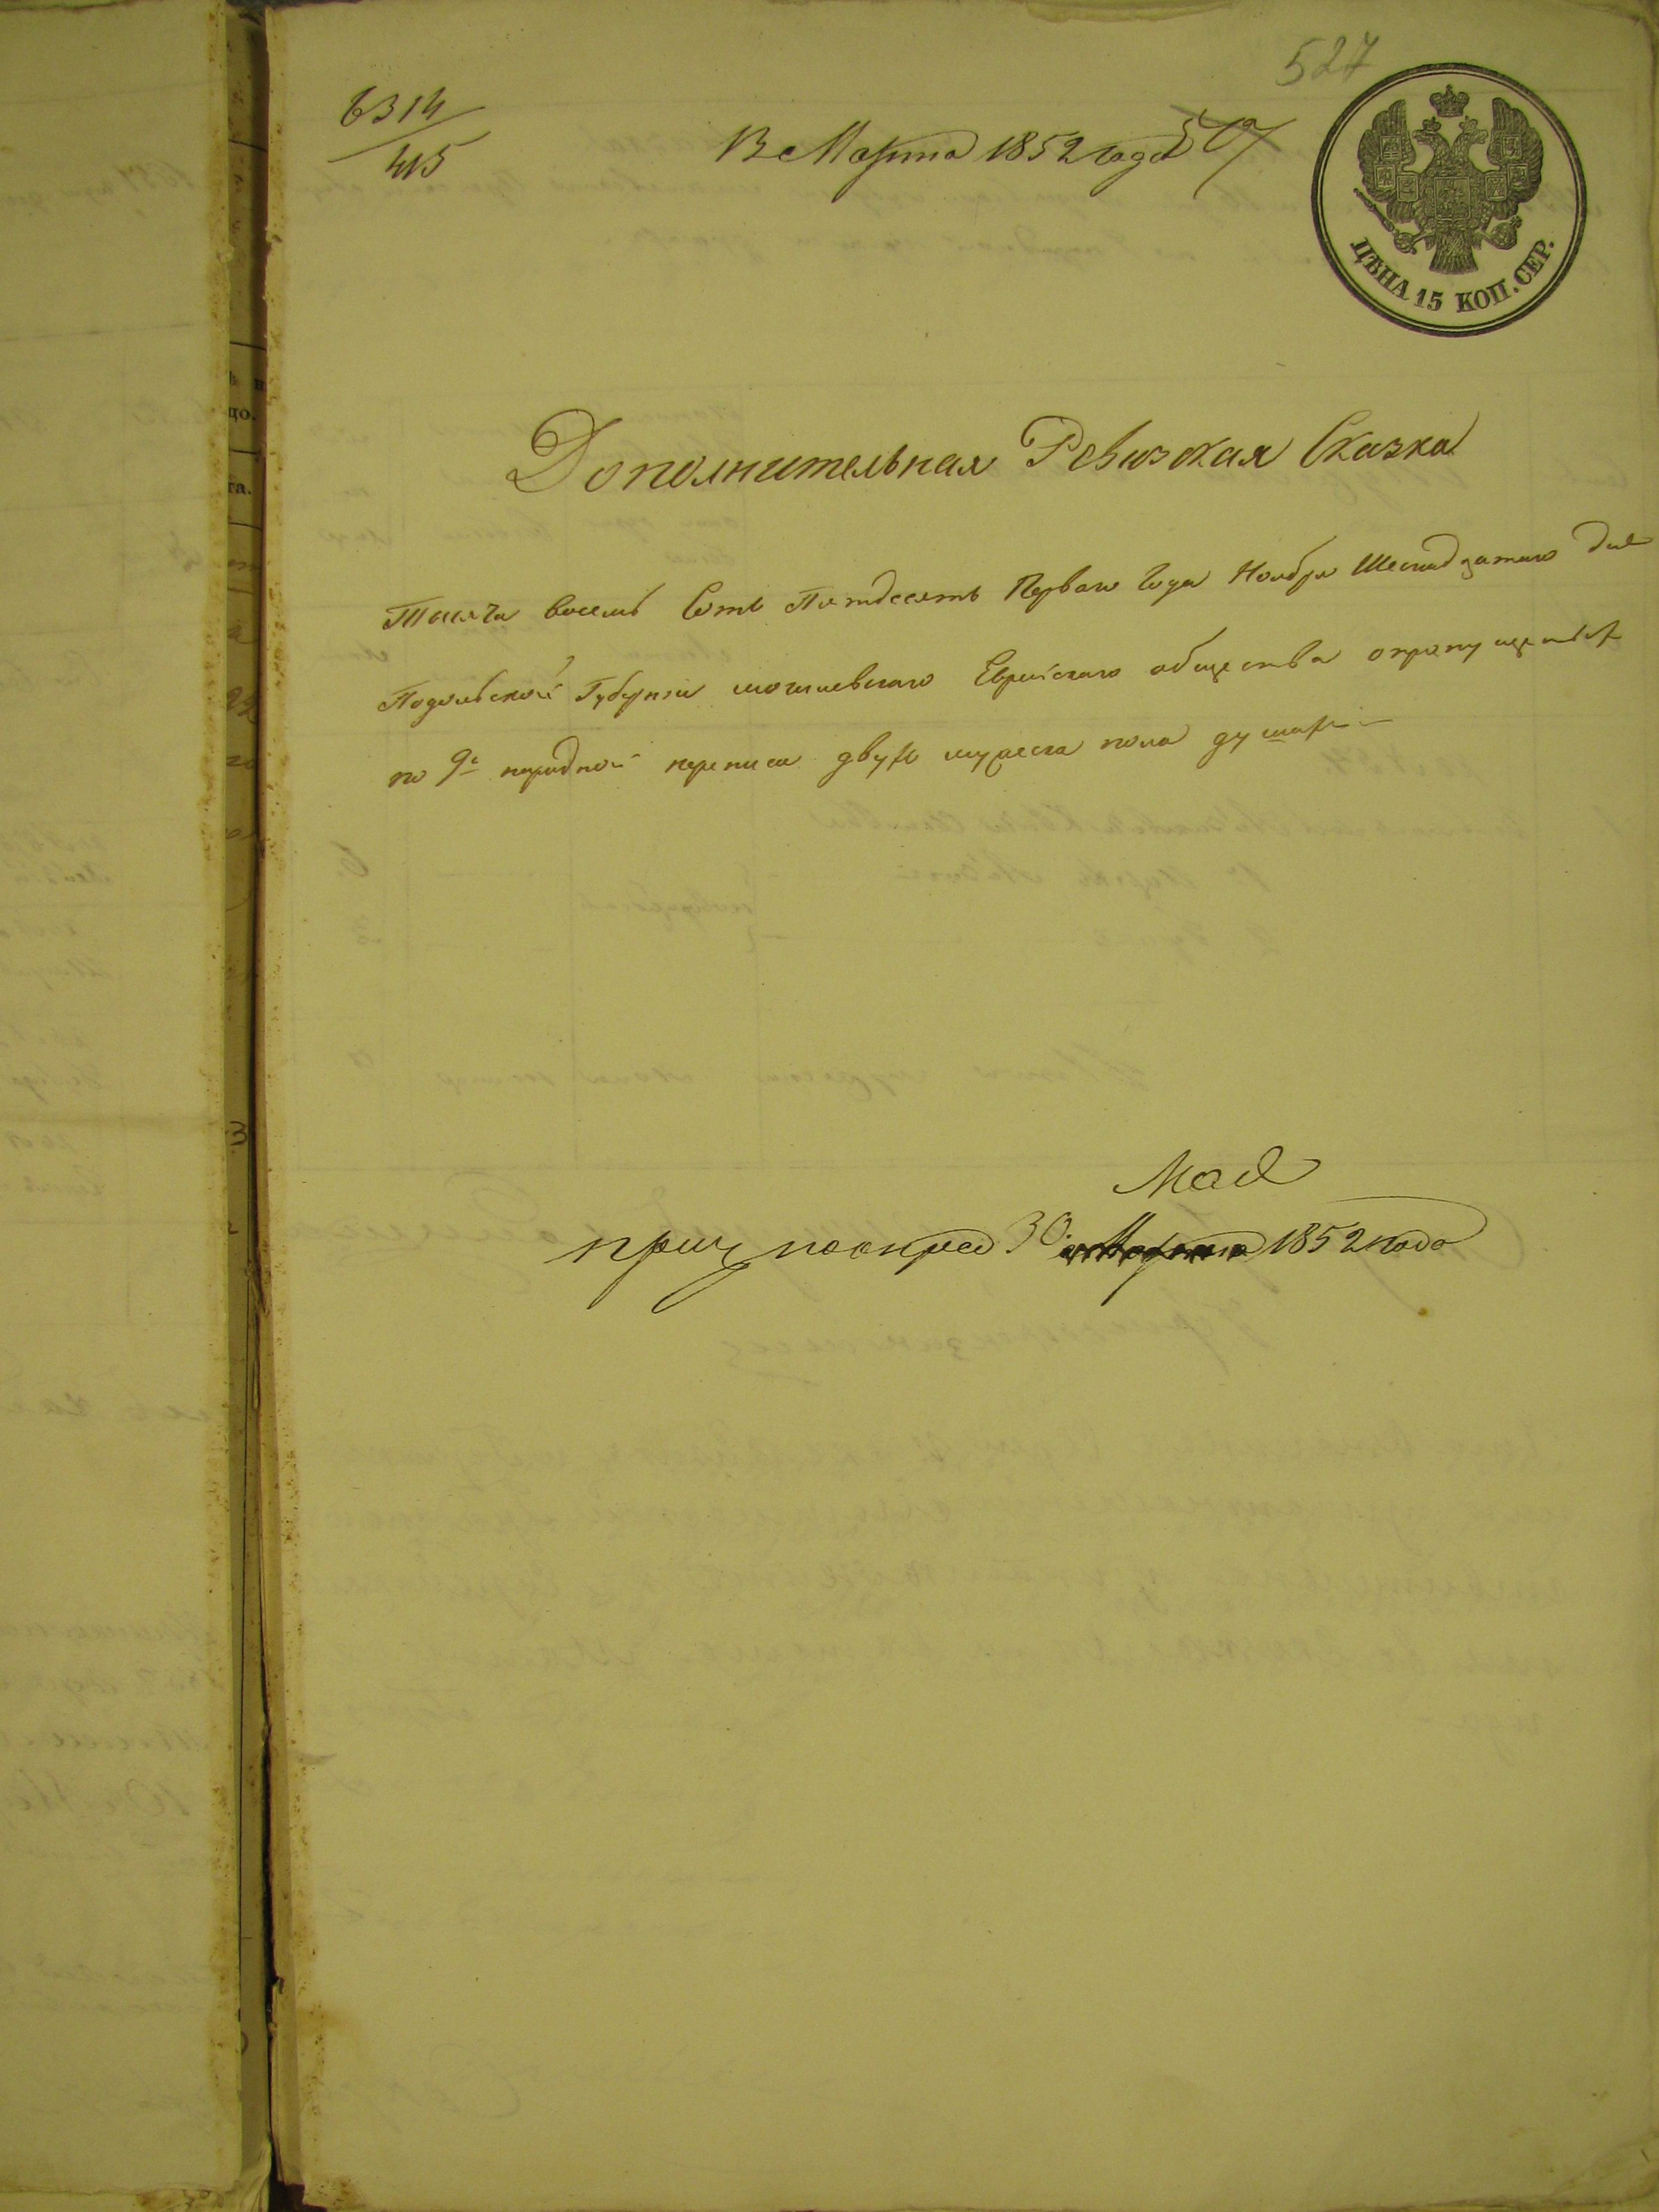 527
6314
415
13 Марта 1852 года
507
ЦѢНА 15 КОП. СЕР.
Дополнительная Ревизская Сказка
Тысяча восемь Сотъ Пятдесятъ Перваго Года Ноября Шеснадцатаго дня
Подольской Губернии могилевскаго Еврейскаго общества о пропущенныхъ
по 9й народной переписи двухъ мужеска пола душахъ
Мая
30 Марта 1852 года